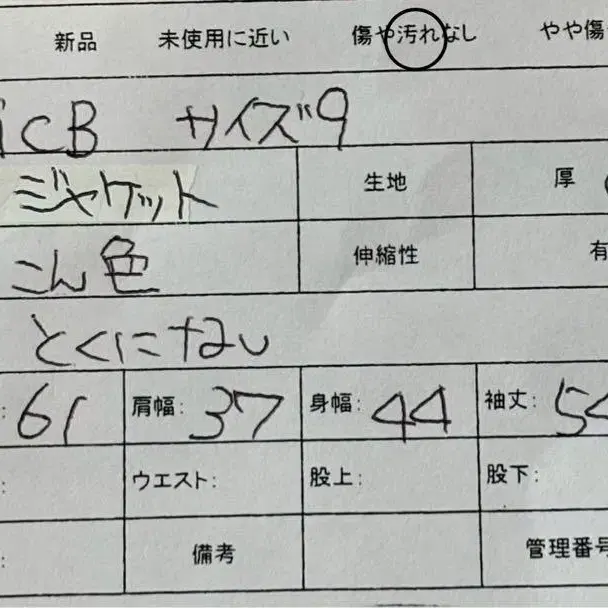 新品 未使用に近い 傷や汚れなし やや傷
iCB サイズ9
ジャケット 生地 厚
こん色 伸縮性 有
とくにナない
61 肩幅: 37 身幅: 44 袖丈: 54
: ウエスト: 股上: 股下:
: 備考 管理番号